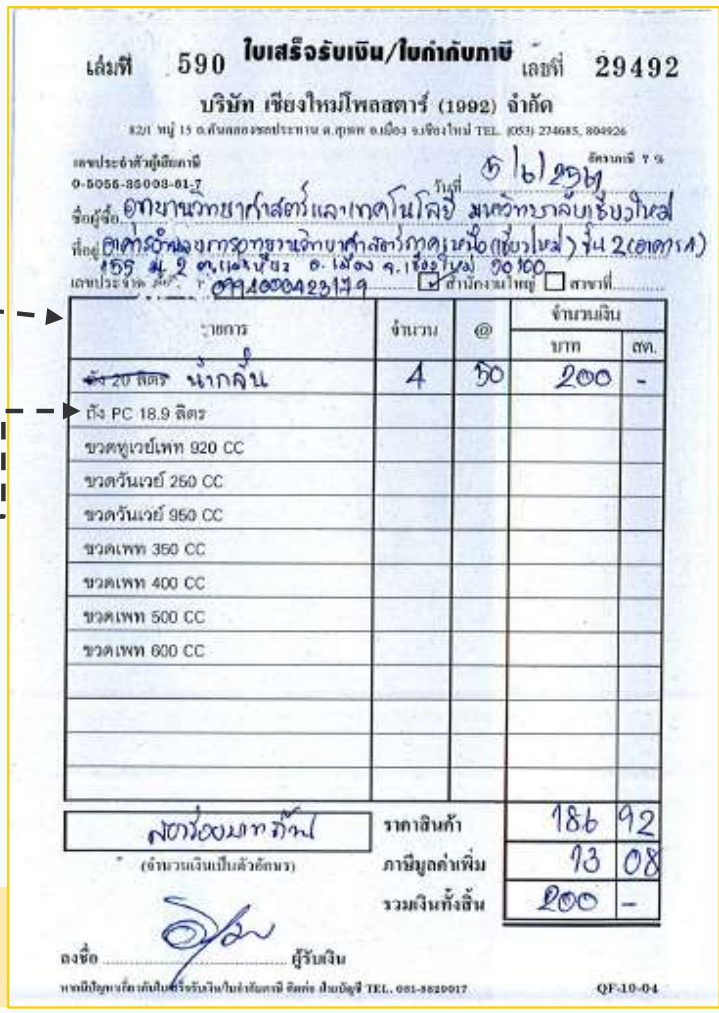 ใบเสร็จรับเงิน/ใบกำกับภาษี
เล่มที่ 590 เลขที่ 29492
บริษัท เชียงใหม่โพลสตาร์ (1992) จำกัด
82/1 หมู่ 15 ถ.คันคลองชลประทาน ต.สุเทพ อ.เมือง จ.เชียงใหม่ TEL. (053) 274685, 804926
เลขประจำตัวผู้เสียภาษี อัตราภาษี 7 %
0-5055-35003-61-7 วันที่ 5/6/2561
ชื่อผู้ซื้อ อุทยานวิทยาศาสตร์และเทคโนโลยี มหาวิทยาลัยเชียงใหม่
ที่อยู่ อาคารอำนวยการอุทยานวิทยาศาสตร์ภาคเหนือ (เชียงใหม่) ชั้น 2 (อาคาร A)
155 ม. 2 ต.แม่เหียะ อ.เมือง จ.เชียงใหม่ 50100
เลขประจำ 0994000423179 สำนักงานใหญ่ สาขาที่
รายการ จำนวน @ จำนวนเงิน
บาท สต.
ถัง 20 ลิตร น้ำกลั่น 4 50 200 -
ถัง PC 18.9 ลิตร
ขวดทูเวย์เพท 920 CC
ขวดวันเวย์ 250 CC
ขวดวันเวย์ 950 CC
ขวดเพท 350 CC
ขวดเพท 400 CC
ขวดเพท 500 CC
ขวดเพท 600 CC
สองร้อยบาทถ้วน ราคาสินค้า 186 92
(จำนวนเงินเป็นตัวอักษร) ภาษีมูลค่าเพิ่ม 13 08
รวมเงินทั้งสิ้น 200 -
ลงชื่อ ผู้รับเงิน
หากมีปัญหาเกี่ยวกับใบเสร็จรับเงิน/ใบกำกับภาษี ติดต่อ ฝ่ายบัญชี TEL. 081-8829917 QF-10-04